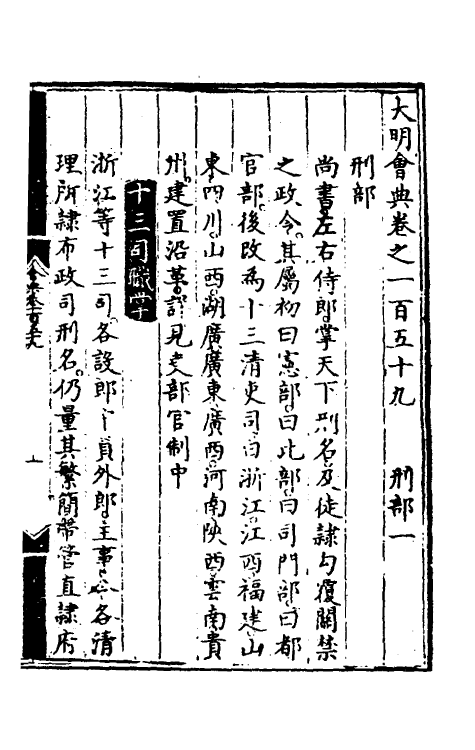 大明會典卷之一百五十九　刑部一
刑部
尚書左右侍郎掌天下刑名及徒隸勾覆關禁
之政令其屬初曰憲部曰比部曰司門部曰都
官部後改為十三清吏司曰浙江江西福建山
東四川山西湖廣廣東廣西河南陝西雲南貴
州建置沿革詳見吏部官制中
十三司職掌
浙江等十三司各設郎中員外郎主事令各清
理所隸布政司刑名仍量其繁簡帶管直隸府